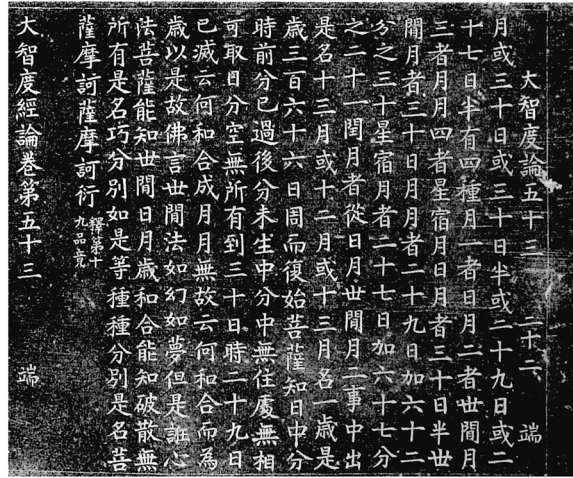 大智度論五十三　二十二　端
月或三十日或三十日半或二十九日或二
十七日半有四種月一者日月二者世間月
三者月月四者星宿月日月者三十日半世
間月者三十日月月者二十九日加六十二
分之三十星宿月者二十七日加六十七分
之二十一閏月者從日月世間月二事中出
是名十三月或十二月或十三月名一歲是
歲三百六十六日周而復始菩薩知日中分
時前分已過後分未生中分中無住處無相
可取日分空無所有到三十日時二十九日
已滅云何和合成月月無故云何和合而為
歲以是故佛言世間法如幻如夢但是誑心
法菩薩能知世間日月歲和合能知破散無
所有是名巧分別如是等種種分別是名菩
薩摩訶薩摩訶衍 釋第十九品竟
大智度經論卷第五十三　端